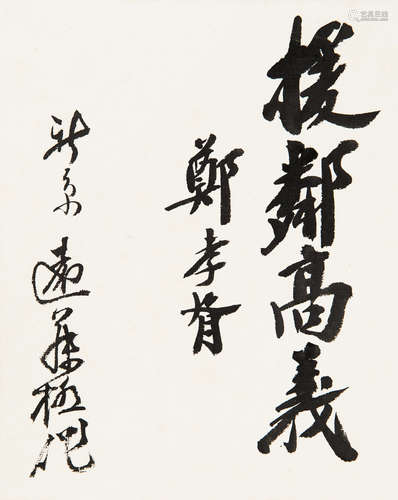 援鄰高義
鄭孝胥
新京
遠藤柳作